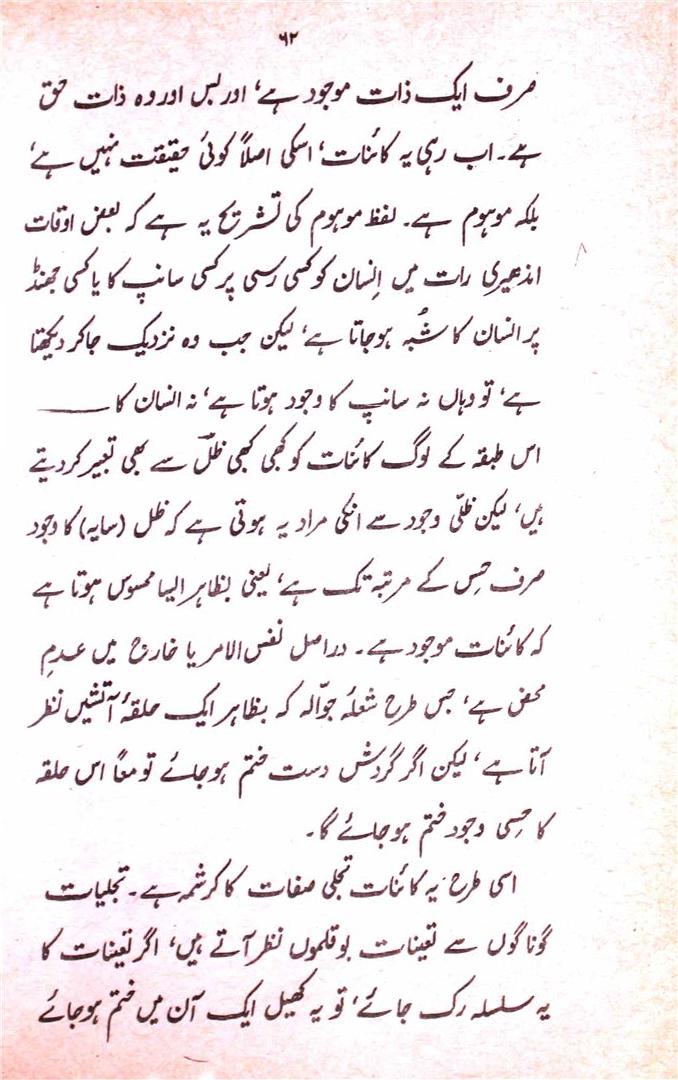 ۶۲
صرف ایک ذات موجود ہے، اور بس اور وہ ذات حق
ہے۔ اب رہی یہ کائنات، اسکی اصلاً کوئی حقیقت نہیں ہے،
بلکہ موہوم ہے۔ لفظ موہوم کی تشریح یہ ہے کہ بعض اوقات
اندھیری رات میں اِنسان کو کسی رسی پر کسی سانپ کا یا کسی جھنڈ
پر انسان کا شُبہ ہوجاتا ہے، لیکن جب وہ نزدیک جا کر دیکھتا
ہے، تو وہاں نہ سانپ کا وجود ہوتا ہے، نہ انسان کا ——
اس طبقہ کے لوگ کائنات کو کبھی کبھی ظلّ سے بھی تعبیر کردیتے
ہیں، لیکن ظلّی وجود سے انکی مراد یہ ہوتی ہے کہ ظل (سایہ) کا وجود
صرف حِس کے مرتبہ تک ہے، یعنی بظاہر ایسا محسوس ہوتا ہے
کہ کائنات موجود ہے۔ دراصل نفس الامر یا خارج میں عدمِ
محض ہے، جس طرح شعلۂ جوّالہ کہ بظاہر ایک حلقۂ آتشیں نظر
آتا ہے، لیکن اگر گردش دست ختم ہوجائے تو معاً اس حلقہ
کا حِسی وجود ختم ہوجائے گا۔
اسی طرح یہ کائنات تجلی صفات کا کرشمہ ہے۔ تجلیات
گوناگوں سے تعینات بوقلموں نظر آتے ہیں، اگر تعینات کا
یہ سلسلہ رک جائے، تو یہ کھیل ایک آن میں ختم ہوجائے